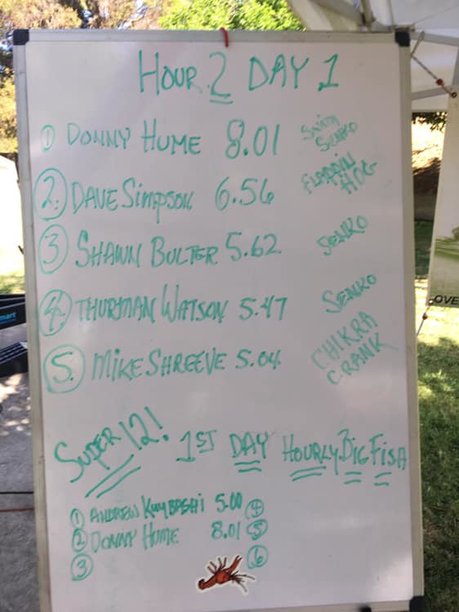 HOUR 2 DAY 1
① DONNY HUME 8.01 SWIM SENKO
②. DAVE SIMPSON 6.56 HOG
③ SHAWN BULTER 5.62 SENKO
④. THURMAN WATSON 5.47 SENKO
⑤. MIKE SHREEVE 5.04 CHIKRA CRANK
SUPER 12! 1ST DAY HOURLY BIG FISH
① ANDREW 5.00 ④
② DONNY HUME 8.01 ⑤
③ ⑥
OVE